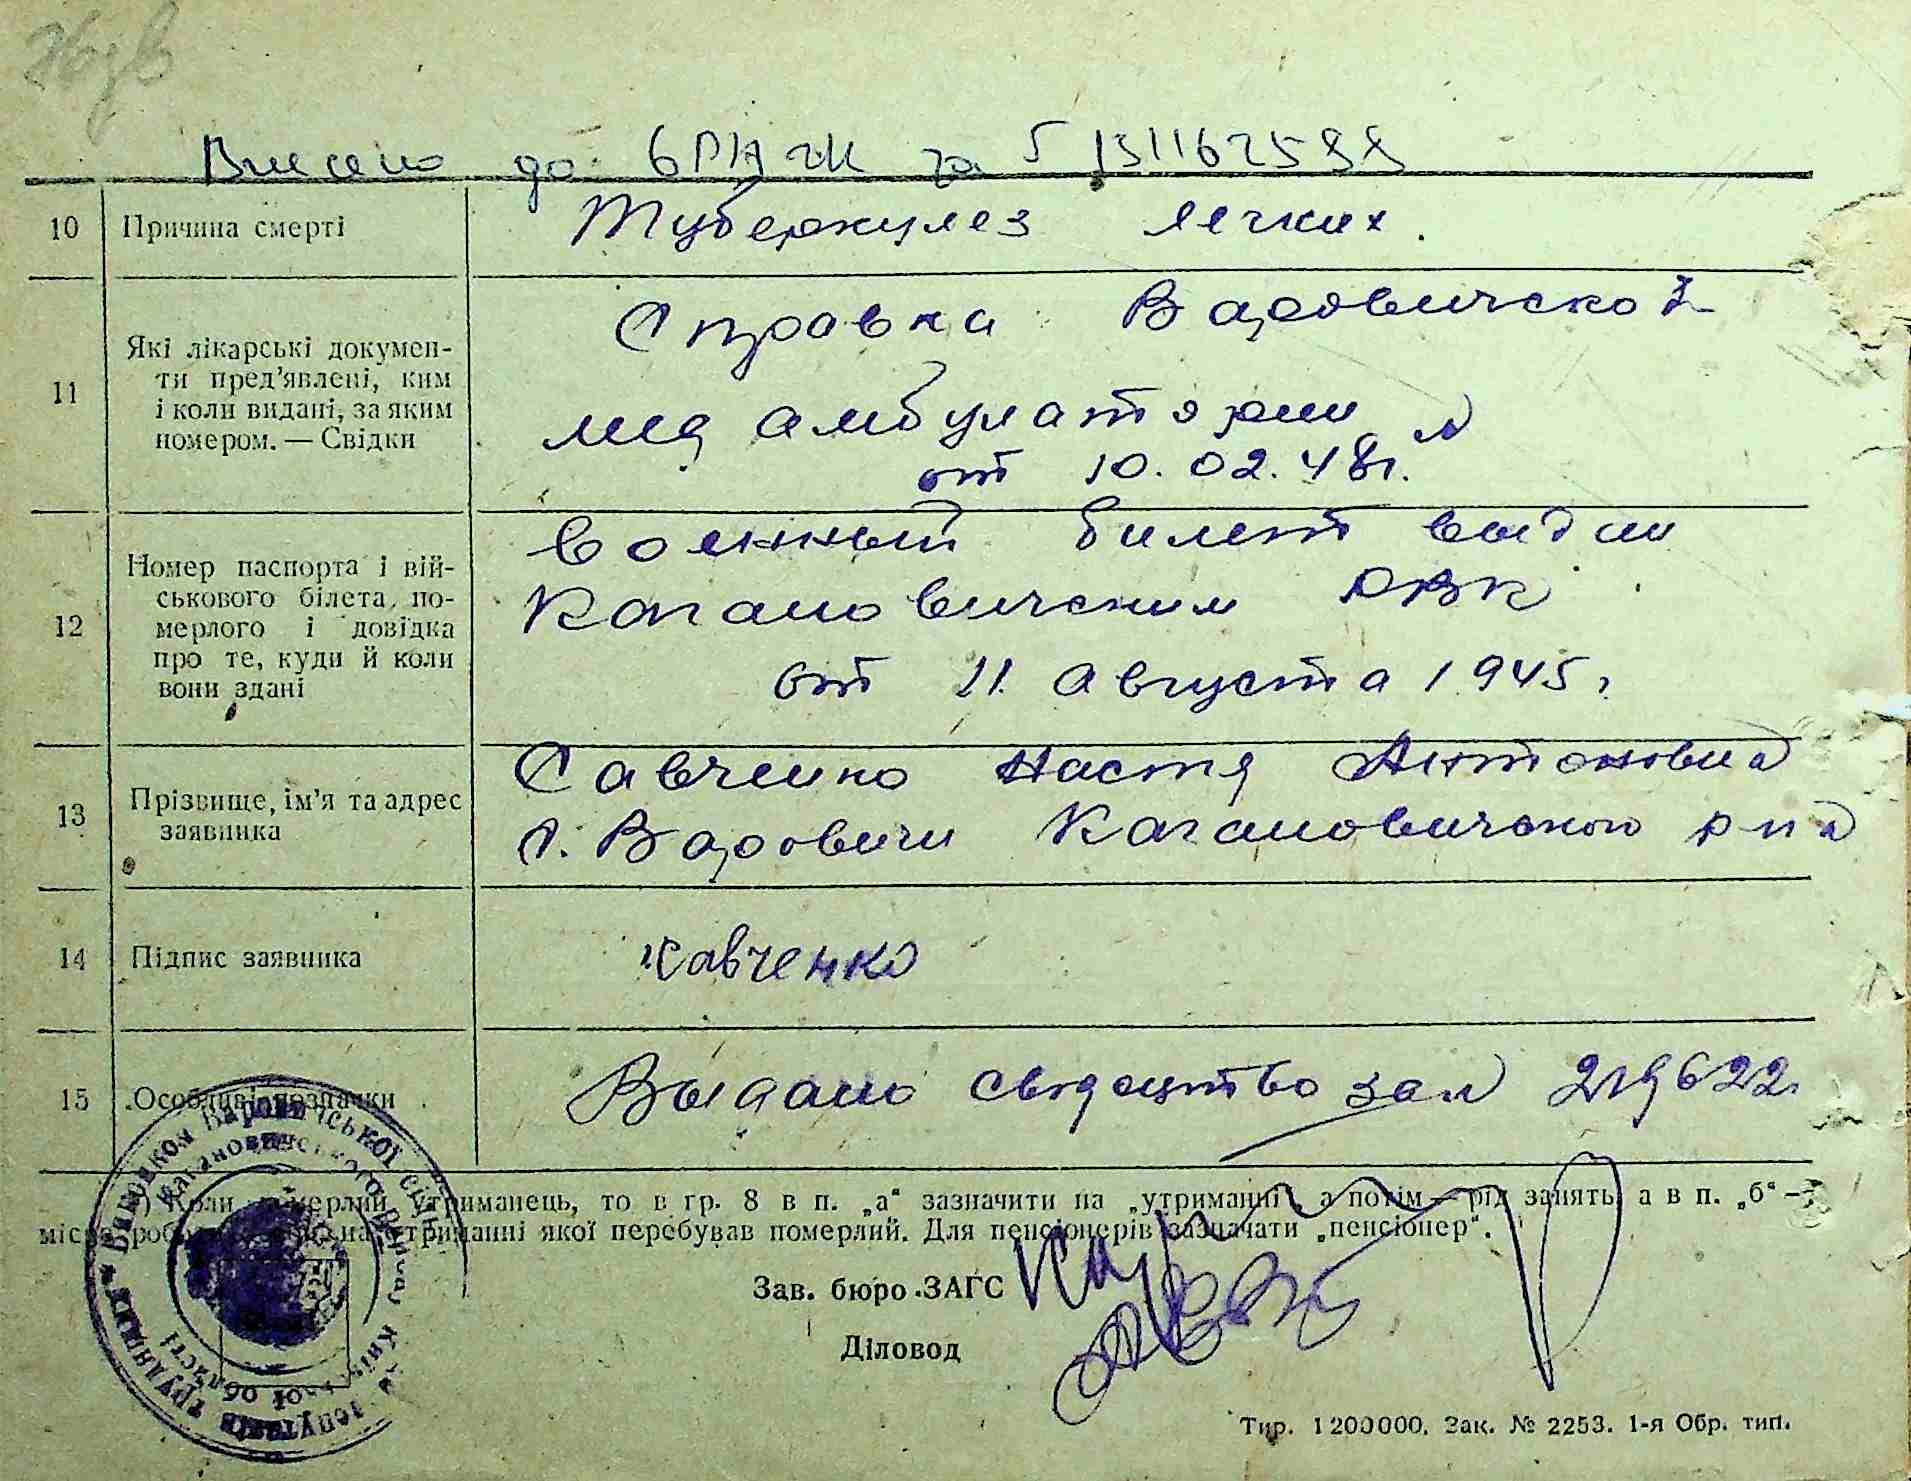 Внесено до за 5
10 Причина смерті Туберкулез легких.
11 Які лікарські докумен-
ти пред'явлені, ким
і коли видані, за яким
номером. — Свідки
Справка Варовичской
мед амбулатории
от 10.02.48г.
12 Номер паспорта і вій-
ськового білета, по-
мерлого і довідка
про те, куди й коли
вони здані
военный билет выдан
Кагановичским РВК
от 11 августа 1945г.
13 Прізвище, ім'я та адрес
заявника
Савченко Настя Антоновна
с. Варовичи Кагановичского р-на
14 Підпис заявника Савченко
15 Особливі позначки
Выдано за № 219622.
*) Коли померлий утриманець, то в гр. 8 в п. „а“ зазначити на „утриманні“, а потім — рід занять, а в п. „б“ —
утриманні якої перебував померлий. Для пенсіонерів зазначати „пенсіонер“.
Зав. бюро ЗАГС
Діловод
Виконком Варовичської сільради депутатів трудящих
Кагановичського району Київської області
Тир. 1200000. Зак. № 2253. 1-я Обр. тип.